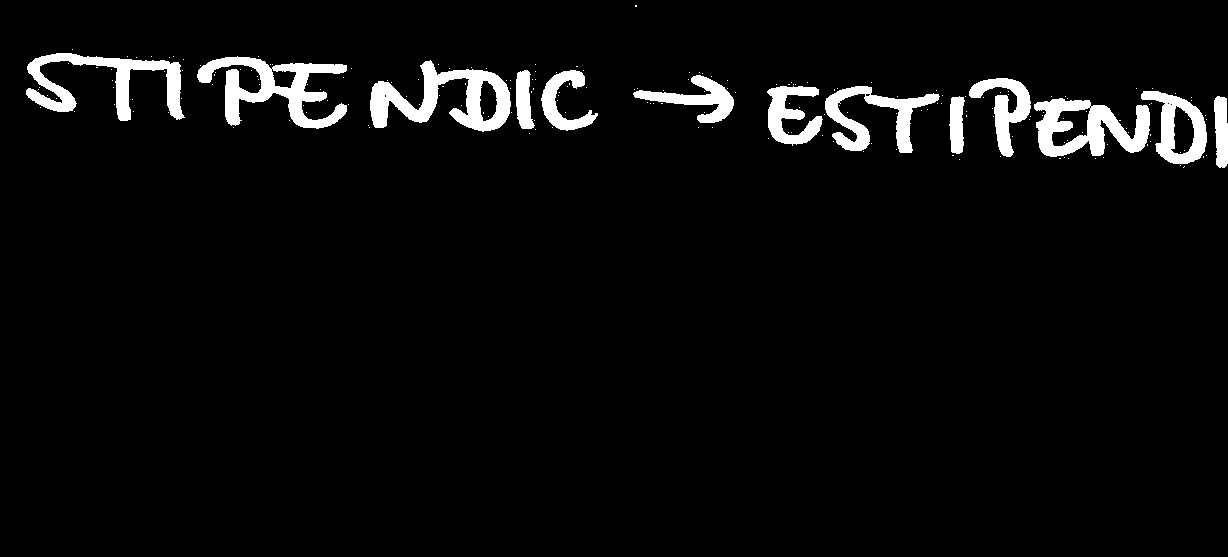 STIPENDIC → ESTIPENDI